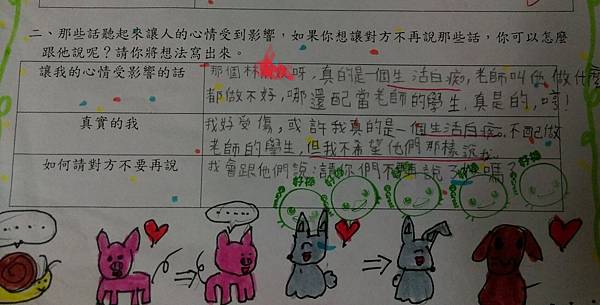 二、那些話聽起來讓人的心情受到影響，如果你想讓對方不再說那些話，你可以怎麼
跟他說呢？請你將想法寫出來。
讓我的心情受影響的話
那個林 呀，真的是一個生活白痴，老師叫他做什麼
都做不好，哪還配當老師的學生，真是的，哼！
真實的我
我好受傷，或許我真的是一個生活白痴。不配做
老師的學生，但我不希望他們那樣說我。
如何請對方不要再說
我會跟他們說：請你們不要再說了，好嗎？